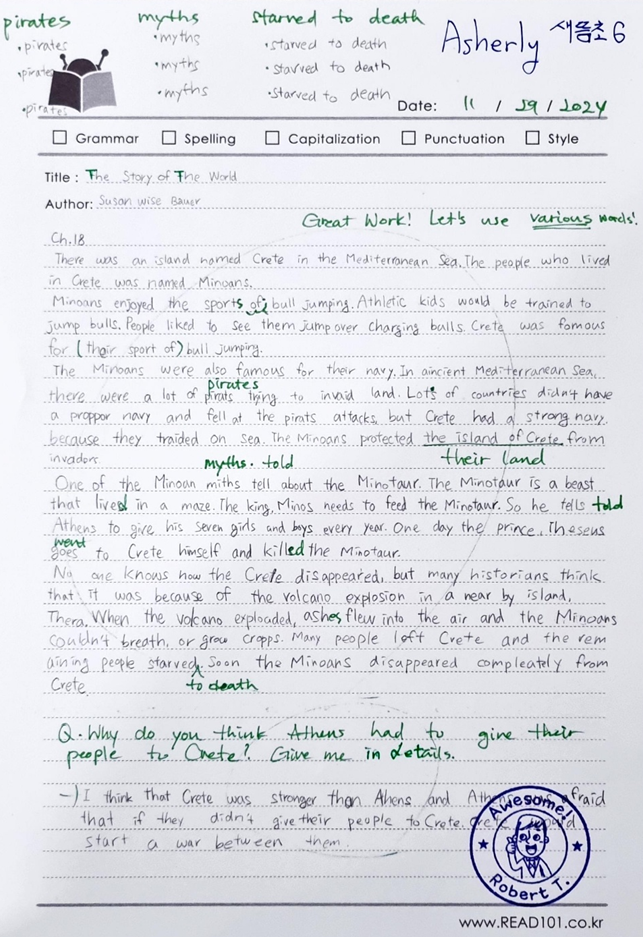 pirates
• pirates
• pirates
• pirates
myths
• myths
• myths
• myths
starved to death
• starved to death
• starved to death
• starved to death
Asherly 새뜸초6
Date: 11 / 29 / 2024
Grammar Spelling Capitalization Punctuation Style
Title : The Story of The World
Author: Susan Wise Bauer
Great Work! Let's use various words!
Ch.18
There was an island named Crete in the Mediterranean Sea. The people who lived
in Crete was named Minoans.
Minoans enjoyed the sports of bull jumping. Athletic kids would be trained to
jump bulls. People liked to see them jump over charging bulls. Crete was famous
for (their sport of) bull jumping.
The Minoans were also famous for their navy. In aincient Mediterranean Sea,
pirates
there were a lot of pirats trying to invaid land. Lots of countries didn't have
a proppor navy and fell at the pirats attacks, but Crete had a strong navy,
because they traided on sea. The Minoans protected the island of Crete from
invadors
their land
myths. told
One of the Minoan miths tell about the Minotaur. The Minotaur is a beast
that lived in a maze. The king, Minos needs to feed the Minotaur. So he tells told
Athens to give his seven girls and boys every year. One day the prince, Theseus
went
goes to Crete himself and killed the Minotaur.
No one knows how the Crete disappeared, but many historians think
that it was because of the volcano explosion in a near by island,
Thera. When the volcano exploaded, ashes flew into the air and the Minoans
couldn't breath, or grow cropps. Many people left Crete and the rem
aining people starved. Soon the Minoans disappeared compleately from
Crete
to death
Q. Why do you think Athens had to give their
people to Crete? Give me in details.
-) I think that Crete was stronger than Ahens and Athens was afraid
that if they didn't give their people to Crete, Crete would
start a war between them.
Awesome!
Robert T.
www.READ101.co.kr